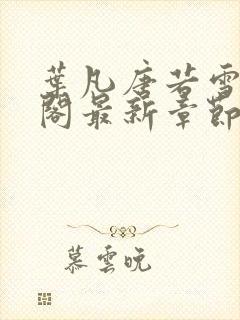 葉凡唐若雪
閣最新章節
慕雲晚